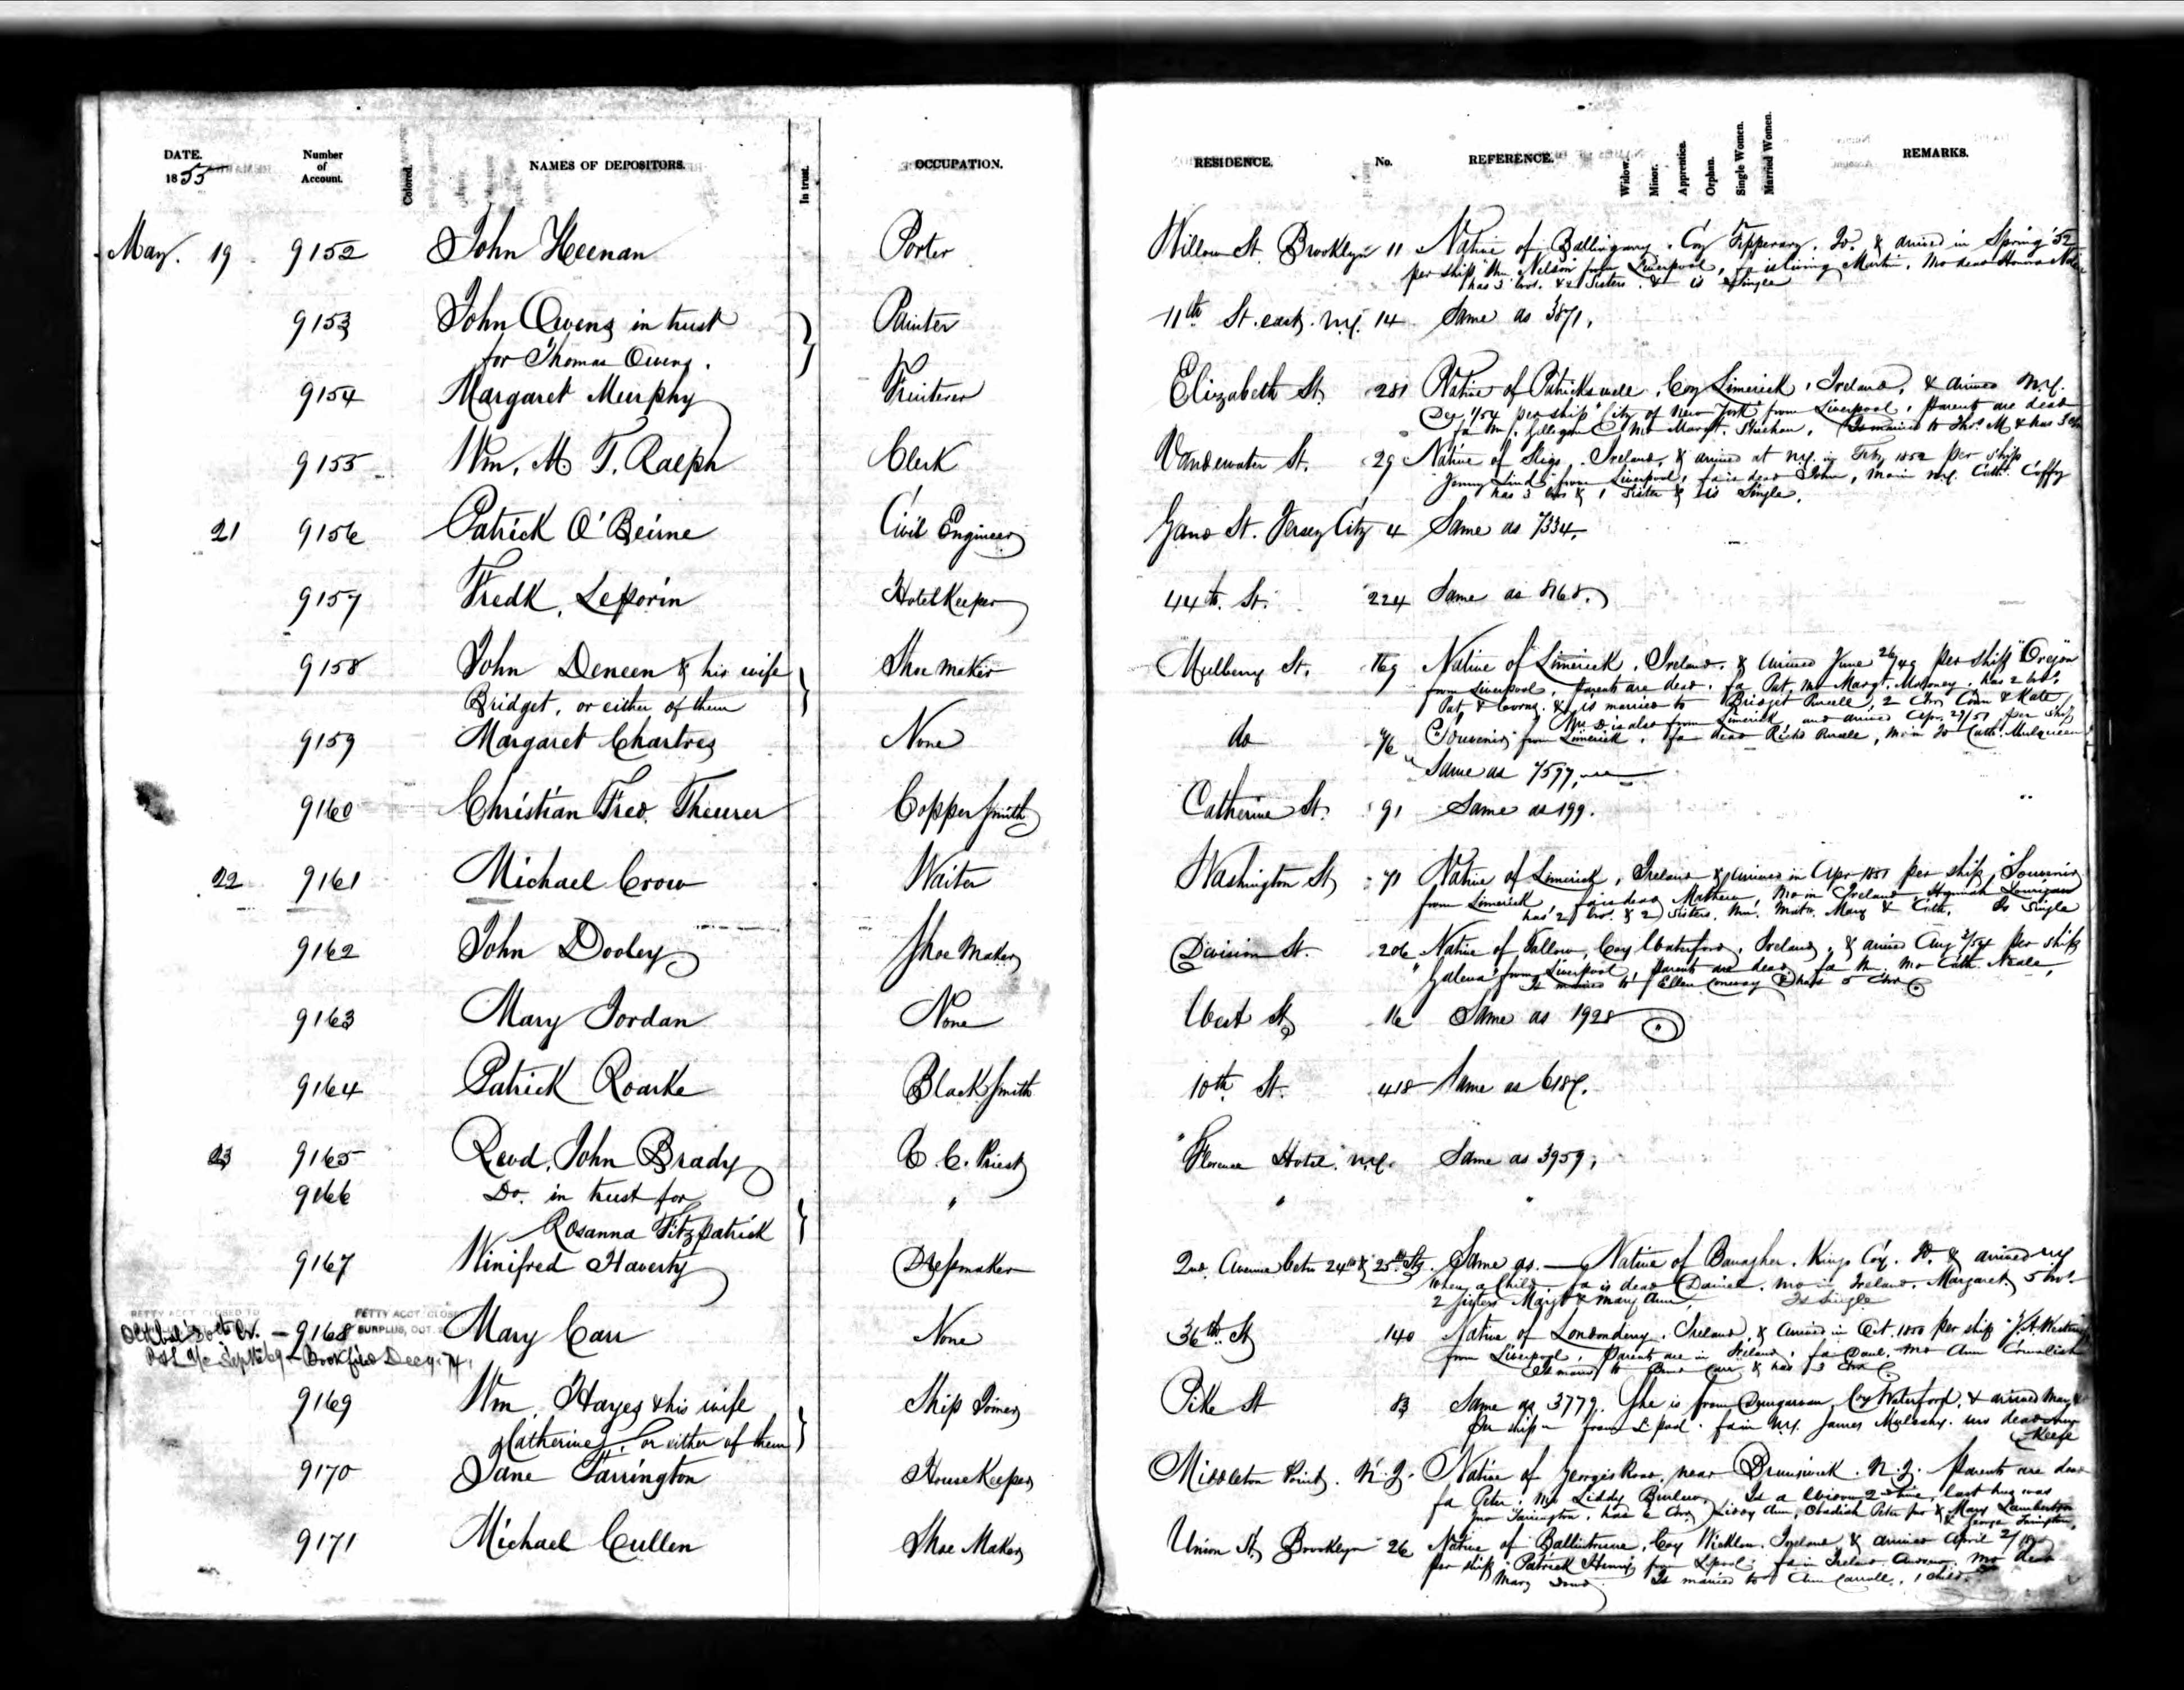 DATE. 1855
Number of Account.
Colored.
NAMES OF DEPOSITORS.
In trust.
OCCUPATION.
RESIDENCE.
No.
REFERENCE.
Widow.
Minor.
Apprentice.
Orphan.
Single Women.
Married Women.
REMARKS.
May. 19 9152 John Heenan Porter Willow St. Brooklyn 11 Native of Ballingarry. Coy Tipperary. Id. & arrived in Spring '52
per ship "Wm Nelson" from Liverpool, fa is living Martin. Mo dead Honora
has 3 bros. & 2 Sisters. & is Single
9153 John Owens in trust Painter 11th St. east. N.Y. 14 Same as 3871,
for Thomas Owens.
9154 Margaret Murphy Fruiterer Elizabeth St. 281 Native of Patrickswell. Coy Limerick, Ireland, & arrived N.Y.
per ship "City of New York" from Liverpool, Parents are dead
fa Wm. Gilligan Mo Margt. Is married to Thos. M & has 3
9155 Wm. M T. Ralph Clerk Vandewater St. 29 Native of Sligo. Ireland, & arrived at N.Y. in Feby 1852 per ship
"Jenny Lind" from Liverpool, fa is dead John, Mo in N.Y. Cath. Caffry
has 3 bros & 1 Sister & is Single.
21 9156 Patrick O'Beirne Civil Engineer St. Jersey City 4 Same as 7334,
9157 Fredk. Leporin Hotel Keeper 44th. St. 224 Same as 8168.
9158 John Deneen & his wife Shoe maker Mulberry St. 169 Native of Limerick. Ireland. & arrived June 26/49 per ship "Oregon"
Bridget, or either of them from Liverpool, Parents are dead. fa Pat, Mo Margt. Moloney. has 2 bros.
Pat & & is married to Bridget Purcell, 2 Chn & Kate
Mrs D is also from Limerick and arrived Apr. 29/51 per ship
"Souvenir" from Limerick. fa dead Richd Purcell, Mo in Id Cath. Mulqueen
9159 Margaret Chartres None do 76 Same as 7597,
9160 Christian Fred. Theurer Copper Smith Catherine St. 91 Same as 199.
22 9161 Michael Crow Waiter Washington St 71 Native of Limerick, Ireland & arrived in Apr 1851 per ship "Souvenir"
from Limerick, fa is dead Mathew, Mo in Ireland, Lonrigan
has 2 bro. & 2 Sisters. Wm. Matw. Mary & Cath. Is Single
9162 John Dooley Shoe Maker Division St. 206 Native of Tallow, Coy Waterford, Ireland, & arrived Aug 2/54 per ship
"Galena" from Liverpool, Parents are dead. fa Wm. Mo Cath. Neale,
Is married to Ellen Conway & has 5 Chn
9163 Mary Jordan None West St 16 Same as 1928
9164 Patrick Roarke Black Smith 10th St. 418 Same as 6187.
23 9165 Revd. John Brady R. C. Priest "Florence Hotel. N.Y. Same as 3959,
9166 Do. in trust for " " "
Rosanna Fitzpatrick
9167 Winifred Haverty Dressmaker 2nd. Avenue betn 24th & 25th Sts. Same as. — Native of Banagher. Kings Coy. Id. & arrived N.Y.
when a Child fa is dead Daniel. Mo in Ireland. Margaret 5 bros
2 Sisters Margt & Mary Ann, Is Single
PETTY ACCT. CLOSED TO
SURPLUS, OCT.
9168 Mary Carr None 36th. St 140 Native of Londonderry. Ireland, & arrived in Oct. 1850 per ship
from Liverpool, Parents are in Ireland, fa Paul. Mo Ann
Is married to Carr & has 3 Chn
9169 Wm. Hayes & his wife Ship Joiner Pike St 83 Same as 3779. She is from Dungarvan, Coy Waterford, & arrived May
Catherine, or either of them Per ship — from L'pool. fa in N.Y. James Mulcahy. Mo dead
Keefe
9170 Jane Farrington House Keeper Middleton Point. N.J. Native of Georges Road, near Brunswick. N.J. Parents are dead
fa Peter, Mo Liddy Is a Widow 2nd time, last hus was
Jno Farrington, has 6 Chn Liddy Ann, Obadiah Peter Jno & Mary Lambertson
& George Farrington,
9171 Michael Cullen Shoe Maker Union St, Brooklyn 26 Native of Coy Wicklow. Ireland, & arrived April
per ship "Patrick Henry" from L'pool, fa in Ireland Andrew. Mo dead
Mary Is married to Ann Carroll, 1 Child.